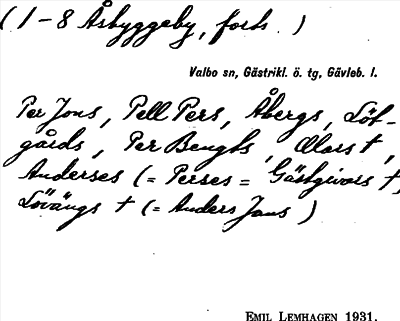 (1-8 Åsbyggeby, forts.)
Valbo sn, Gästrikl. ö. tg, Gävleb. l.
Per Jons, Pell Pers, Åbergs, Löf-
gårds, Per Bengts, Olars †,
Anderses (= Perses = Gästgivars †,
Lövängs † (= Anders Jans)
EMIL LEMHAGEN 1931.